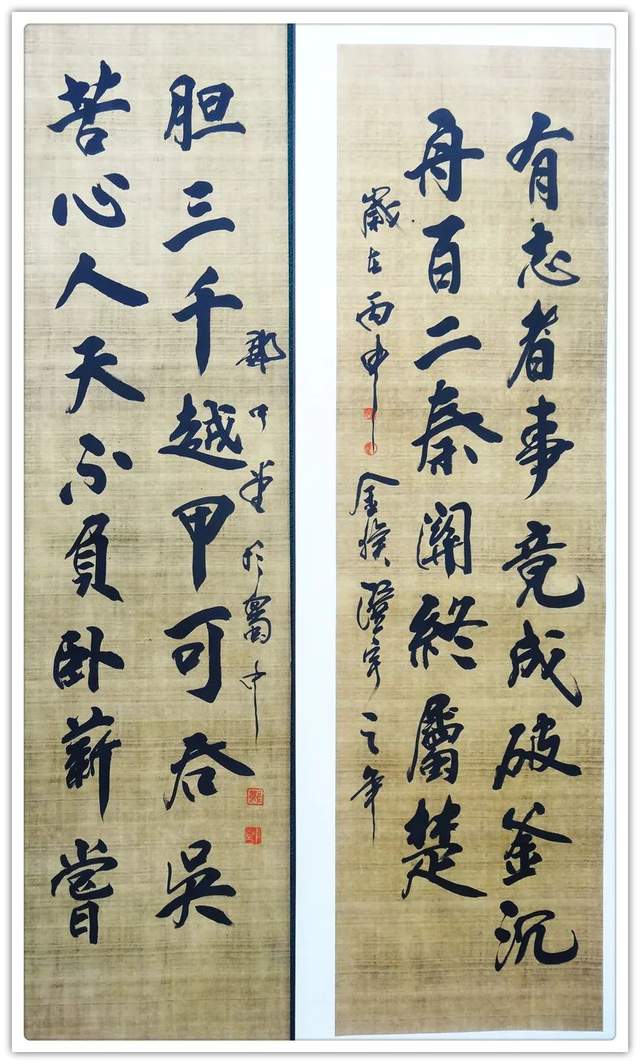 有志者事竟成破釜沉
舟百二秦關終屬楚
歲在丙申
金猴澄宇之年
苦心人天不負卧薪嘗
胆三千越甲可吞吳
於蜀中